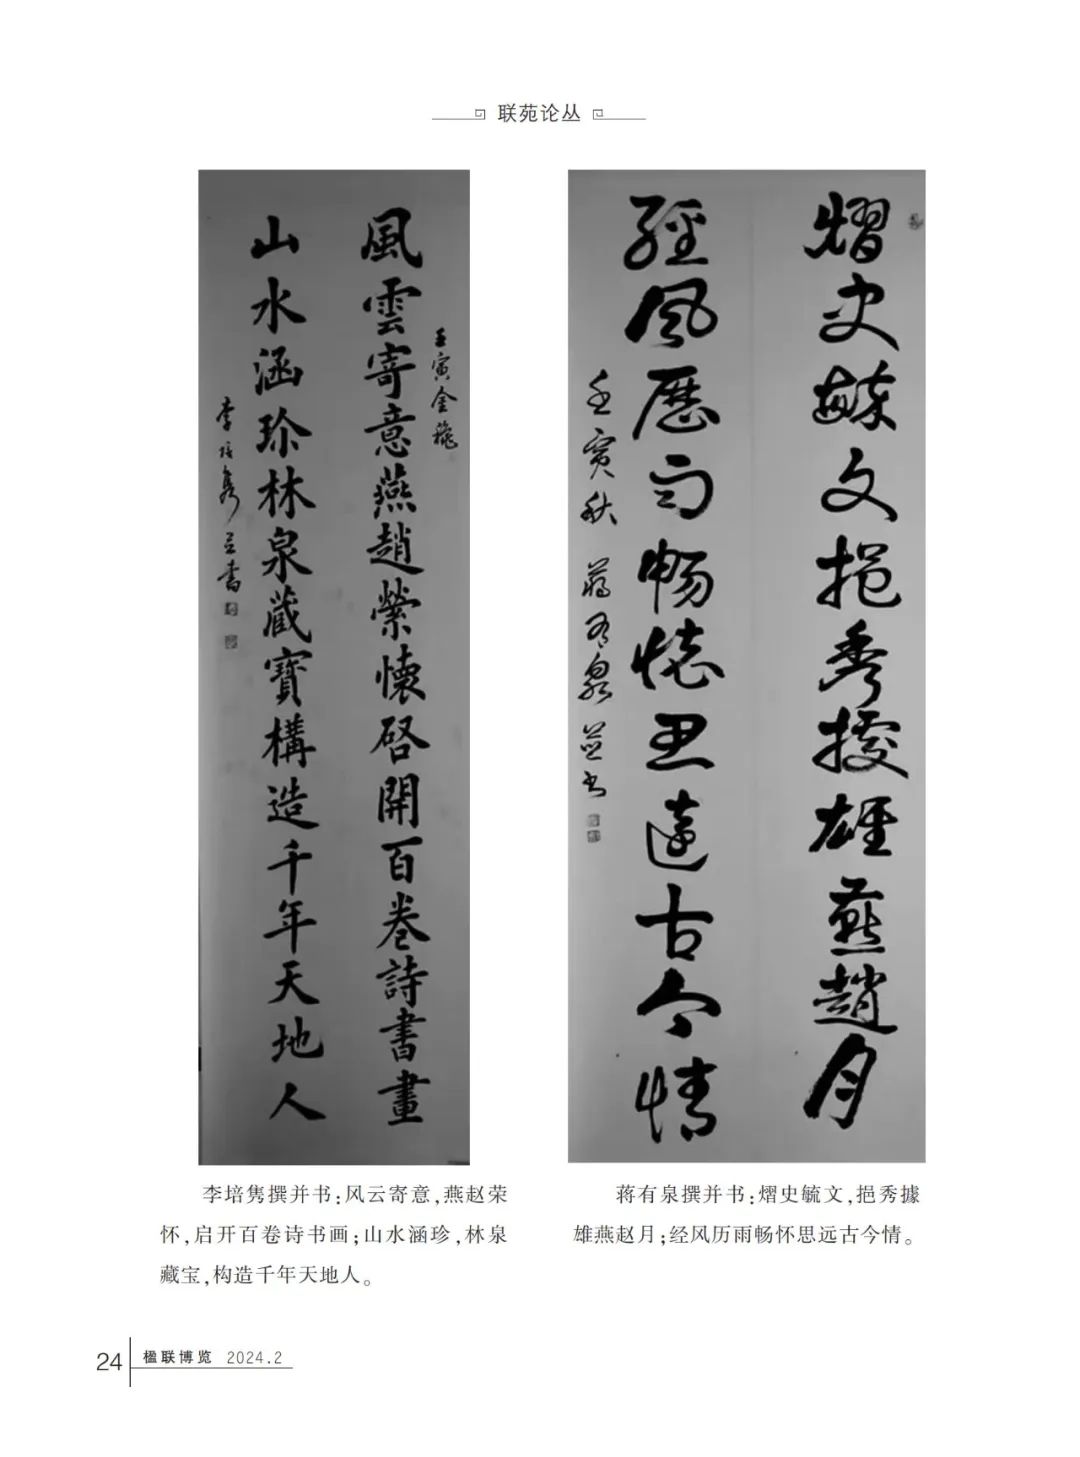 联苑论丛
風雲寄意燕趙縈懷啓開百卷詩書畫
壬寅金穐
山水涵珍林泉藏寶構造千年天地人
李培隽并書
熠史毓文挹秀據雄燕趙月
經風歷雨畅懷思遠古今情
壬寅秋 蔣有泉並书
李培隽撰并书:风云寄意,燕赵荣
怀,启开百卷诗书画;山水涵珍,林泉
藏宝,构造千年天地人。
蒋有泉撰并书:熠史毓文,挹秀據
雄燕赵月;经风历雨畅怀思远古今情。
24 楹联博览 2024.2